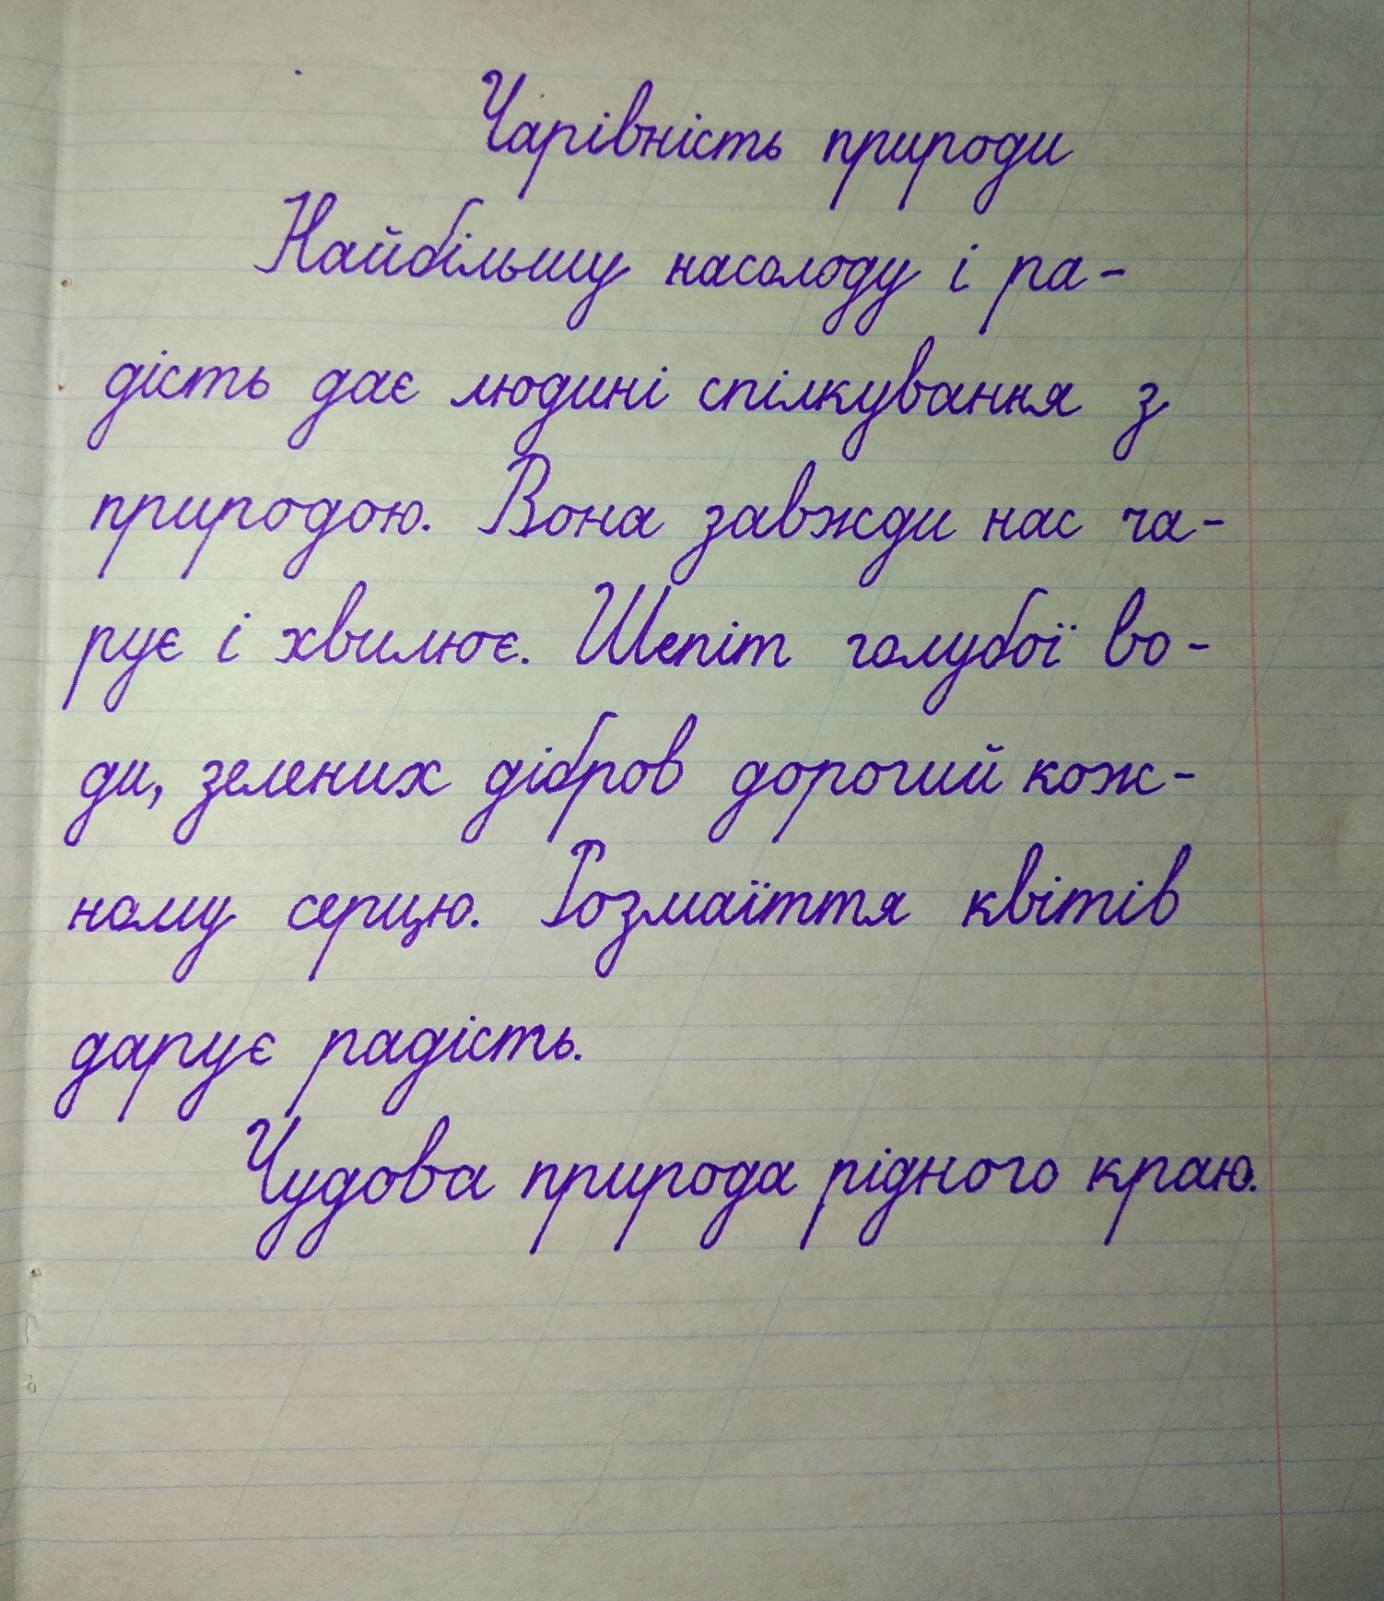 Чарівність природи
Найбільшу насолоду і ра-
дість дає людині спілкування з
природою. Вона завжди нас ча-
рує і хвилює. Шепіт голубої во-
ди, зелених дібров дорогий кож-
ному серцю. Розмаїття квітів
дарує радість.
Чудова природа рідного краю.